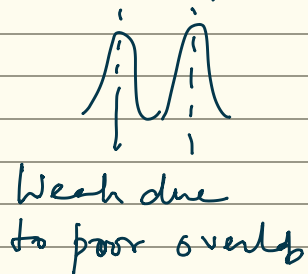 Weak due
to poor overlap